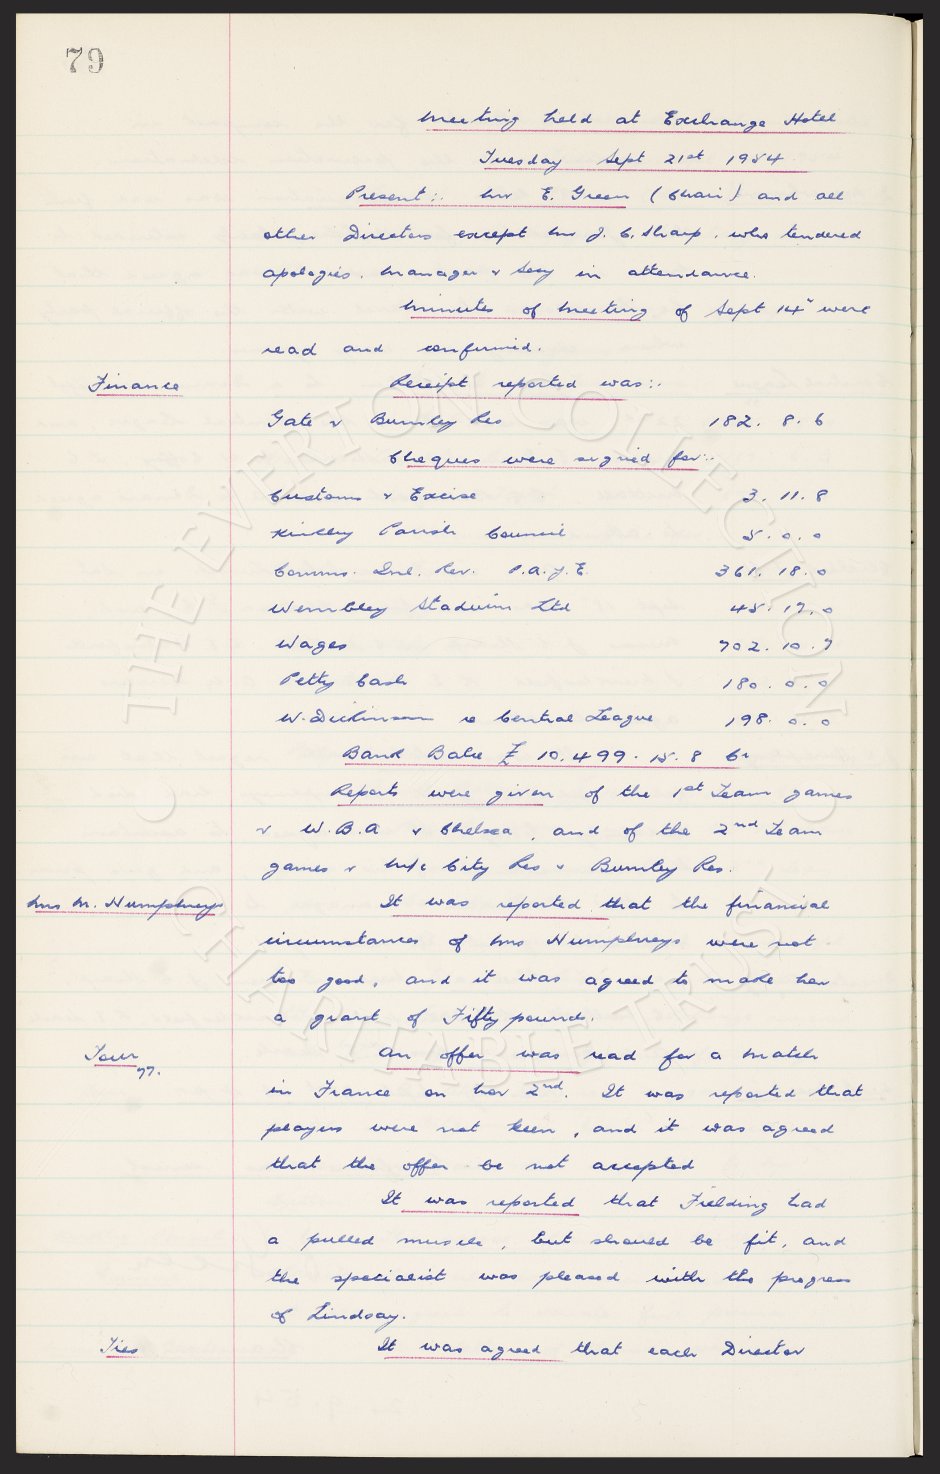 79
Meeting held at Exchange Hotel
Tuesday Sept 21st 1954.
Present:. Mr E. Green (Chair) and all
other Directors except Mr J. C. Sharp. who tendered
apologies. Manager & Secy in attendance.
Minutes of Meeting of Sept 14" were
read and confirmed.
Finance Receipt reported was:.
Gate v Burnley Res 182. 8. 6
Cheques were signed for:.
Customs & Excise 3. 11. 8
Kirkby Parish Council 5. 0. 0
Comms. Inl. Rev. P.A.Y.E. 361. 18. 0
Wembley Stadium Ltd 45. 17. 0
Wages 702. 10. 7
Petty Cash 180. 0. 0
W. Dickinson re Central League 198. 0. 0
Bank Balce £ 10.499. 15. 8 Cr
Reports were given of the 1st Team games
v W.B.A v Chelsea, and of the 2nd Team
games v M/c City Res v Burnley Res.
Mrs M. Humphreys It was reported that the financial
circumstances of Mrs Humphreys were not
too good, and it was agreed to make her
a grant of Fifty pounds.
Tour An offer was read for a match
77.
in France on Nov 2nd. It was reported that
players were not keen, and it was agreed
that the offer be not accepted
It was reported that Fielding had
a pulled muscle, but should be fit, and
the specialist was pleased with the progress
of Lindsay.
Ties It was agreed that each Director
© THE EVERTON COLLECTION ©
CHARITABLE TRUST